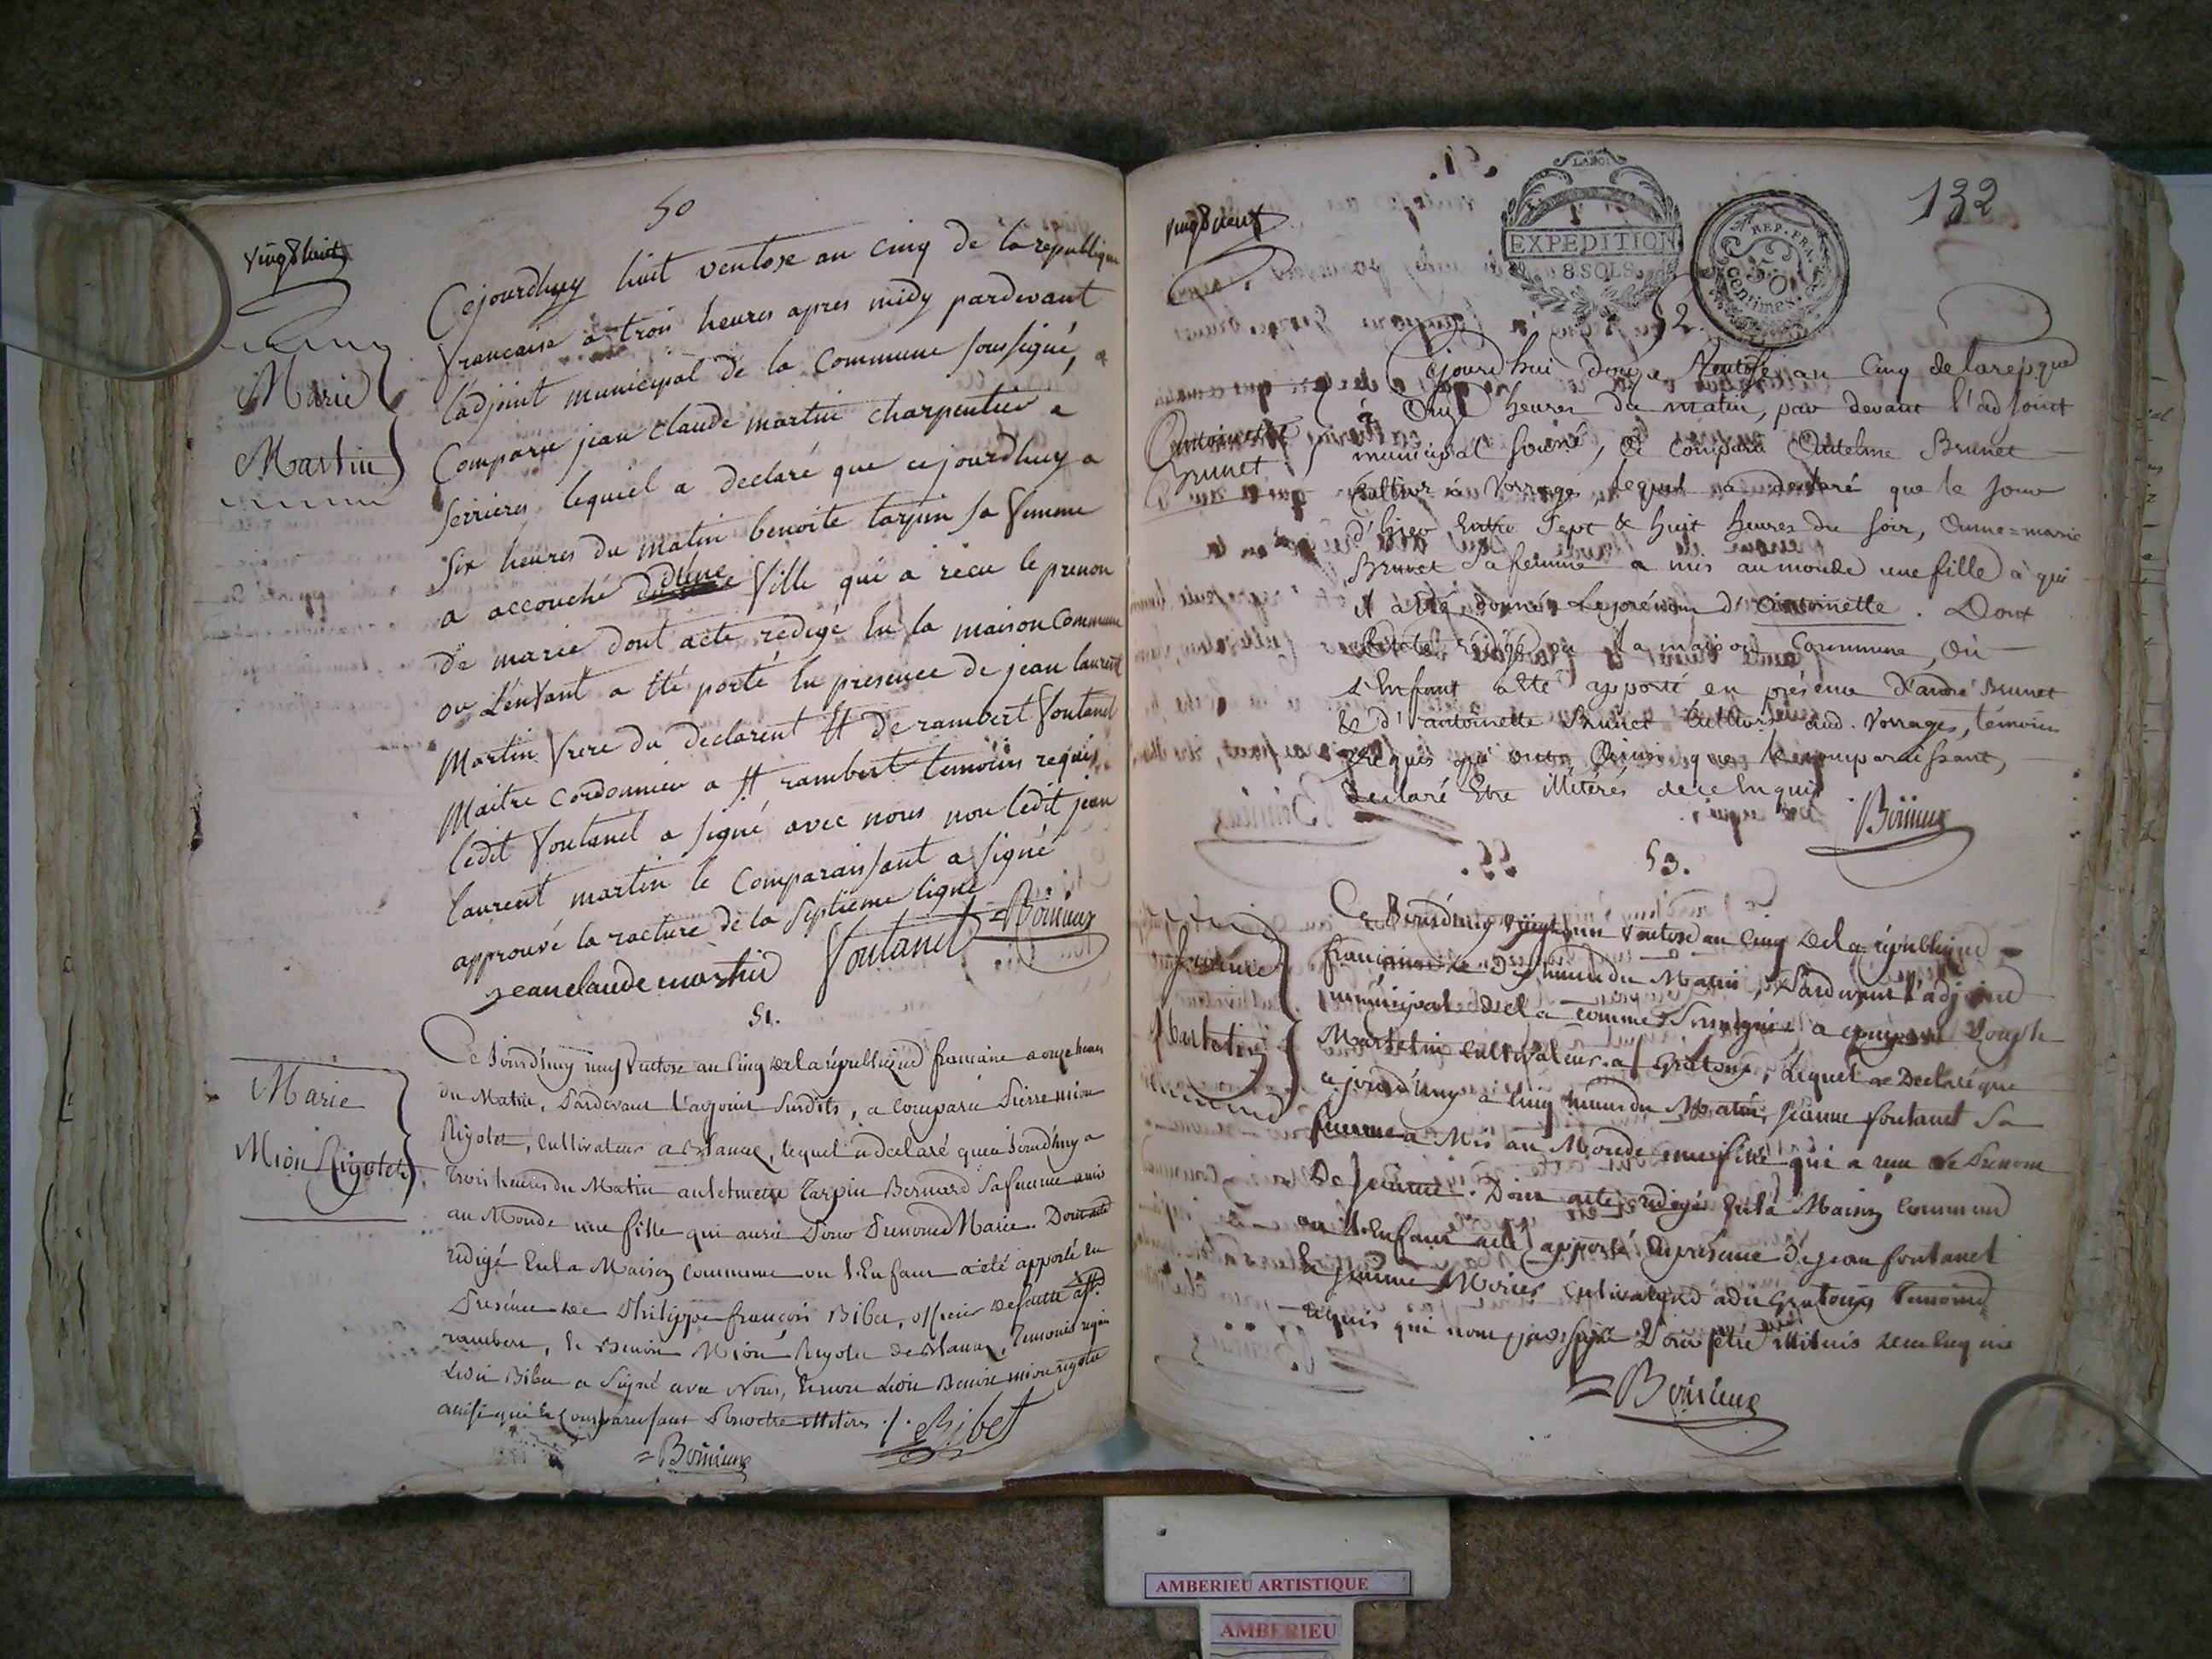 50
vingt huit
Cejourdhuy huit ventose an cinq de la republique
Francaise a trois heures apres midy pardevant
l'adjoint municipal de la Commune soussigné, a
Marie
Martin
Comparu jean claude martin charpentier a
serrieres lequel a declaré que cejourdhuy a
six heures du matin benoite tarpin sa femme
a accouché d'une fille qui a recu le prenom
de marie dont acte redigé En la maison Commune
ou L'enfant a Eté porté En presence de jean laurent
Martin frere du declarent Et de rambert fontanel
Maitre cordonnier a St rambert temoins requis
ledit fontanel a signé avec nous non ledit jean
laurent martin le Comparaissant a signé
approuvé la racture de la septieme ligne
jean claude martin Fontanel Boirieux
51.
Ce Jourd'huy neuf Ventose an Cinq de la république francaine a onze heures
du Matin, Pardevant l'adjoint susdits, a comparu Pierre mion
Marie
Mion Rigolet
Rigolet, Cultivateur a Blanaz, lequel a declaré que ce Jourd'huy a
Trois heures du Matin antelmette Tarpin Bernard sa femme a mis
au Monde une fille qui aura Pour Prenom Marie. Dont acte
redigé En la Maison Commune ou l'Enfant a été apporté en
Presence de Philippe françois Bibet, officier de santé a St.
rambert, & Benoit Mion Rigolet de Blanaz, Temoins requis
Ledit Bibet a Signé avec Nous, & non Ledit Benoit mion rigolet
ainsi que le Comparaissant Pour etre illitérés ./. Bibet
=Boirieux
132
vingt neuf
LA LOI
EXPEDITION
8 SOLS
REP. FRA.
50
Centimes.
52.
Cejourd'hui douze Ventose, an Cinq de la repque
à Onze heures du matin, par devant l'adjoint
Antoinette
Brunet
municipal soussné, a comparu Antelme Brunet
Cultivr à Vorrages, lequel a declaré que le jour
d'hier Entre Sept & huit heures du soir, Anne=marie
Brunet sa femme a mis au monde une fille à qui
il a Eté donné le prénom d'Antoinette. Dont
Acte rédigé en la maison Commune, où
L'Enfant a Eté apporté en présence d'andré Brunet
& d'antoinette Brunet Cultivrs aud. Vorrages, témoins
requis qui ont, ainsi que le comparaissant,
declaré Etre illitérés de ce Enquis
Boirieux
53.
Ce Jourd'huy vingt un Ventose an Cinq de la république
francaise a dix heures du Matin, Pardevant l'adjoint
Jeanne
Martelin
municipal de la commune soussigné, a comparu Joseph
Martelin Cultivateur a Gratoux, lequel a Declaré que
cejourd'huy a cinq heures du Matin, Jeanne fontanet Sa
femme a Mis au Monde une fille qui a reçu le Prenom
de Jeanne. Dont acte redigé En la Maison Commune
ou l'Enfant a été apporté En présence de jean fontanet
& Jeanne Morier cultivateurs a du Gratoux temoins
requis qui n'ont pas signé Pour être illiterés de ce Enquis
=Boirieux
AMBERIEU ARTISTIQUE
AMBERIEU